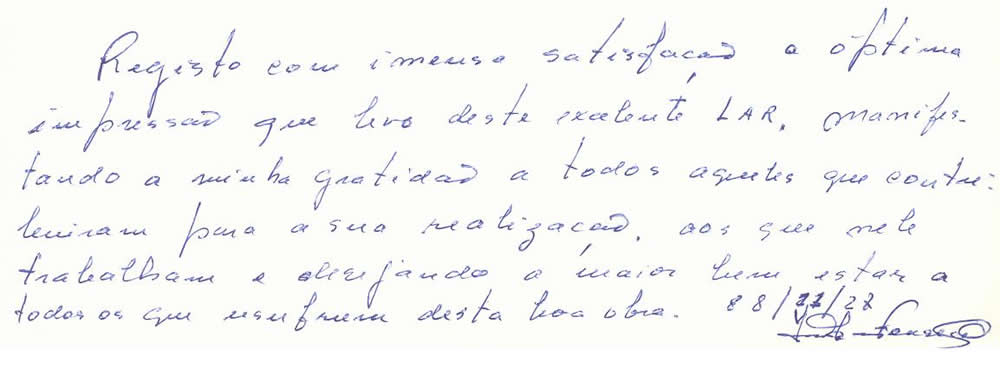 Registo com imensa satisfação a óptima
impressão que levo deste excelente LAR, manifes-
tando a minha gratidão a todos aqueles que contri-
buiram para a sua realização, aos que nele
trabalham e desejando o maior bem estar a
todos os que usufruem desta boa obra. 88/
Fonseca